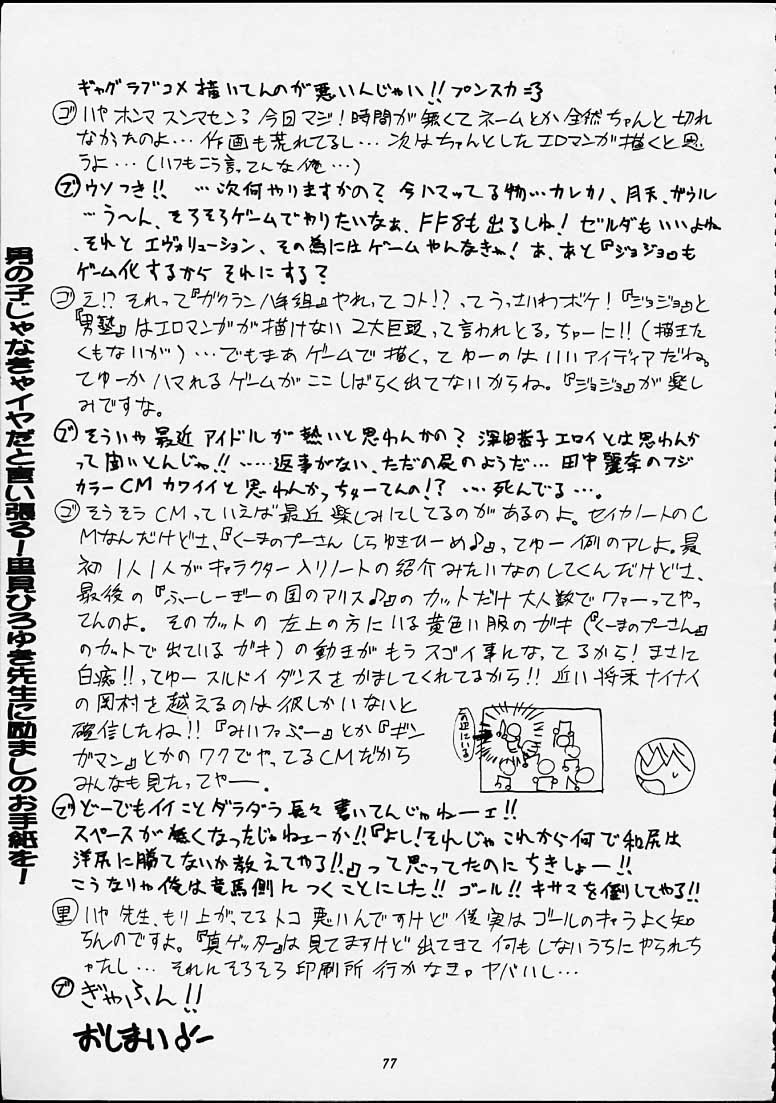 ギャグラブコメ描いてんのが悪いんじゃい!!プンスカ=3
ゴ いやホンマスンマセン?今回マジ!時間が無くてネームとか全然ちゃんと切れ
なかたのよ…作画も荒れてるし…次はちゃんとしたエロマンが描くと思
うよ…(いつもこう言ってんな俺…)
ブ ウソつき!!…次何やりますかの?今ハマッてる物…カレカノ、月天、ガウル
…う〜ん、そろそろゲームでやりたいなぁ、FF8も出るしね!ゼルダもいいよね
、それとエヴォリューション、その為にはゲームやんなきゃ!あ、あと『ジョジョ』も
ゲーム化するからそれにする?
ゴ え!?それって『ガクラン八年組』やれってコト!?ってうっさいわボケ!『ジョジョ』と
『男塾』はエロマンガが描けない2大巨頭って言われとる、ちゅーに!!(描きた
くもないが)…でもまあゲームで描くってゆーのはいいアイディアだね。
てゆーかハマれるゲームがここしばらく出てないからね。『ジョジョ』が楽し
みですな。
ブ そういや最近アイドルが熱いと思わんかの?深田恭子エロイとは思わんか
って聞いとんじゃ!!……返事がない、ただの屍のようだ…田中麗奈のフジ
カラーCMカワイイと思わんかっちゅーてんの!?…死んでる…。
ゴ そうそうCMっていえば最近楽しみにしてるのがあるのよ。セイカノートのC
Mなんだけどさ、『くーまのプーさんしらゆきひーめ♪』ってゆー例のアレよ。最
初1人1人がキャラクター入りノートの紹介みたいなのしてくんだけどさ、
最後の『ふーしーぎーの国のアリス♪』のカットだけ大人数でワァーってやっ
てんのよ。そのカットの左上の方にいる黄色い服のガキ(『くーまのプーさん』
のカットで出ているガキ)の動きがもうスゴイ事んなってるから!まさに
白痴!!ってゆースルドイダンスをかましてくれてるから!!近い将来ナイナイ
の岡村を越えるのは彼しかいないと
確信したね!!『みいファぷー』とか『ギン
ガマン』とかのワクでやってるCMだから
みんなも見たってやー。
この辺にいる
ブ どーでもイイことダラダラ長々書いてんじゃねーェ!!
スペースが無くなったじゃねェーか!!『よし!それじゃこれから何で和尻は
洋尻に勝てないか教えてやる!!』って思ってたのにちきしょー!!
こうなりゃ俺は竜馬側につくことにした!!ゴール!!キサマを倒してやる!!
里 いや先生、もり上がってるトコ悪いんですけど僕実はゴールのキャラよく知
らんのですよ。『真ゲッター』は見てますけど出てきて何もしないうちにやられち
ゃたし…それにそろそろ印刷所行かなきゃヤバいし…
ブ ぎゃふん!!
おしまい♪ー
男の子じゃなきゃイヤだと言い張る!里見ひろゆき先生に励ましのお手紙を!
77